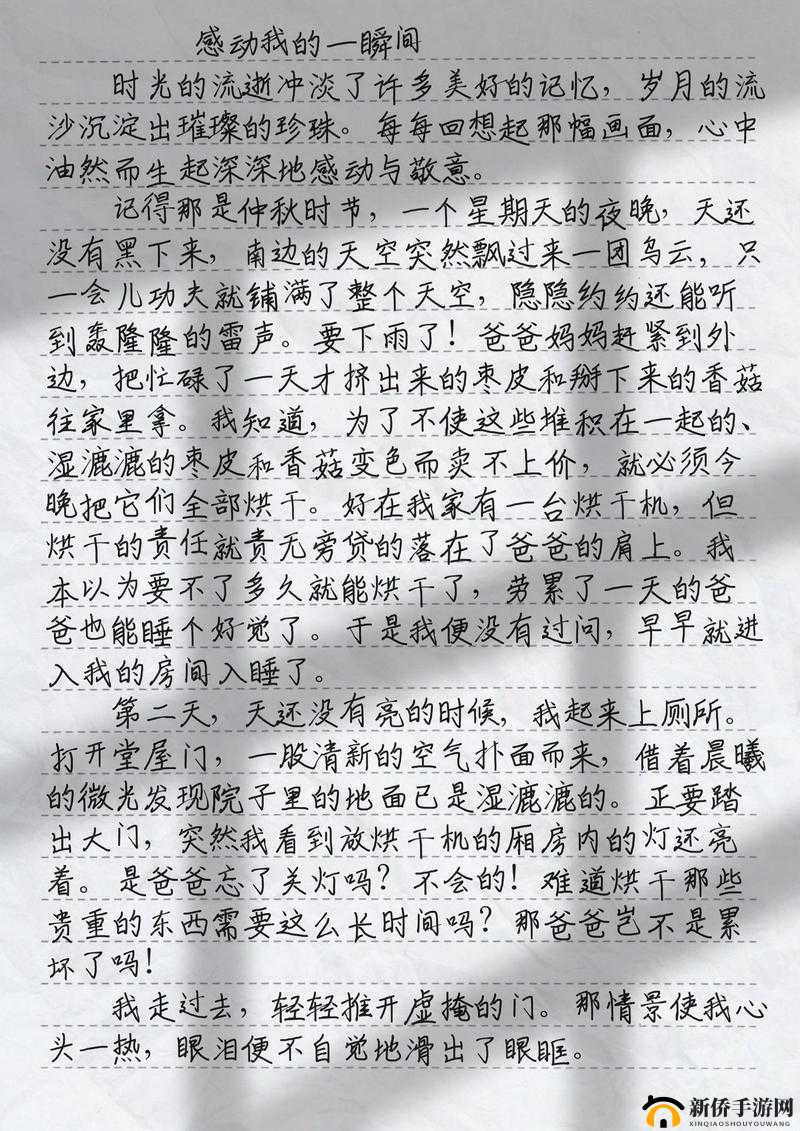 感动我的一瞬间
时光的流逝冲淡了许多美好的记忆，岁月的流
沙沉淀出璀璨的珍珠。每每回想起那幅画面，心中
油然而生起深深地感动与敬意。
记得那是仲秋时节，一个星期天的夜晚，天还
没有黑下来，南边的天空突然飘过来一团乌云，只
一会儿功夫就铺满了整个天空，隐隐约约还能听
到轰隆隆的雷声。要下雨了！爸爸妈妈赶紧到外
边，把忙碌了一天才挤出来的枣皮和掰下来的香菇
往家里拿。我知道，为了不使这些堆积在一起的、
湿漉漉的枣皮和香菇变色而卖不上价，就必须今
晚把它们全部烘干。好在我家有一台烘干机，但
烘干的责任就责无旁贷的落在了爸爸的肩上。我
本以为要不了多久就能烘干了，劳累了一天的爸
爸也能睡个好觉了。于是我便没有过问，早早就进
入我的房间入睡了。
第二天，天还没有亮的时候，我起来上厕所。
打开堂屋门，一股清新的空气扑面而来，借着晨曦
的微光发现院子里的地面已是湿漉漉的。正要踏
出大门，突然我看到放烘干机的厢房内的灯还亮
着。是爸爸忘了关灯吗？不会的！难道烘干那些
贵重的东西需要这么长时间吗？那爸爸岂不是累
坏了吗！
我走过去，轻轻推开虚掩的门。那情景使我心
头一热，眼泪便不自觉地滑出了眼眶。
新侨手游网
XINQIAOSHOUYOUWANG